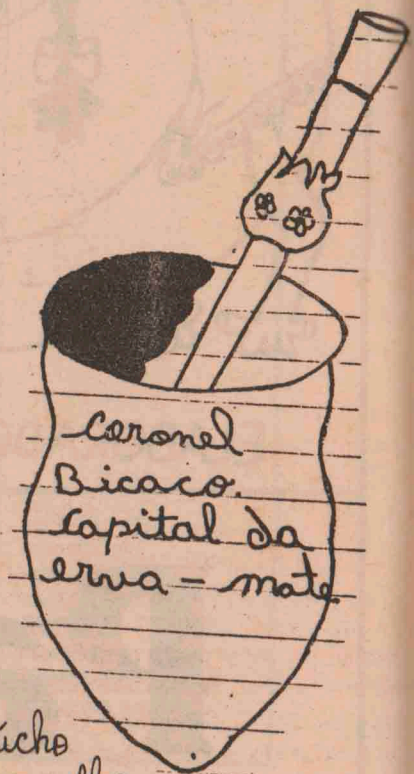 Coronel
Bicaco.
Capital da
erva - mate
úcho